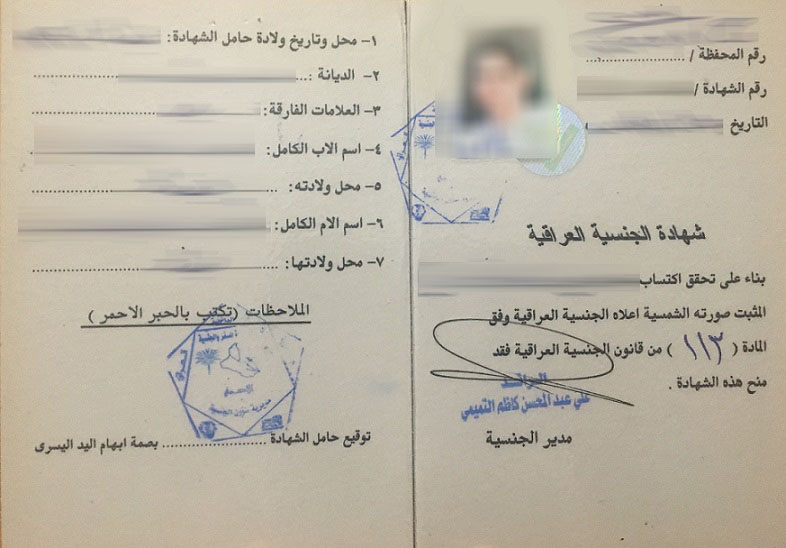 رقم المحفظة /
رقم الشهادة /
التاريخ
شهادة الجنسية العراقية
بناء على تحقق اكتساب
المثبت صورته الشمسية اعلاه الجنسية العراقية وفق
المادة ( ١١٣ ) من قانون الجنسية العراقية فقد
منح هذه الشهادة .
علي عبد المحسن كاظم التميمي
مدير الجنسية
١- محل وتاريخ ولادة حامل الشهادة:
٢- الديانة :
٣- العلامات الفارقة:
٤- اسم الاب الكامل:
٥- محل ولادته:
٦- اسم الام الكامل:
٧- محل ولادتها:
الملاحظات (تكتب بالحبر الاحمر )
توقيع حامل الشهادة .................. بصمة ابهام اليد اليسرى